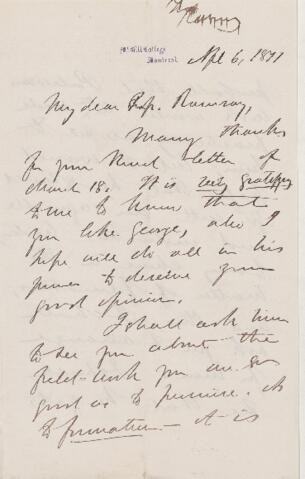 Ramsay
McGill College
Montreal
Apl 6, 1871
My dear Prof. Ramsay,
Many thanks
for your kind letter of
March 18. It is very gratifying
to me to know that
you like George, who I
hope will do all in his
power to deserve your
good opinion.
I shall ask him
to see you about the
field-work you are so
good as to promise. As
to formation — it is